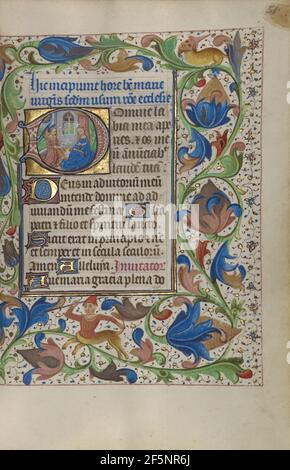 Hic incipiunt hore bte marie
virginis scdm usum roe ecclesie
Domine la
bia mea ape
ries. et os me
um annūciab
laudē tuā.
Deus in adiutoriū meū
intende domine ad ad
iuuandū me festina. Gloria
patri et filio et spiritui sancto
Sicut erat in principio et nūc
et semper et in secula seculorū
amen Alleluya. Inuitator
Aue maria gracia plena do
alamy
Image ID: 2F5NRGJ
www.alamy.com